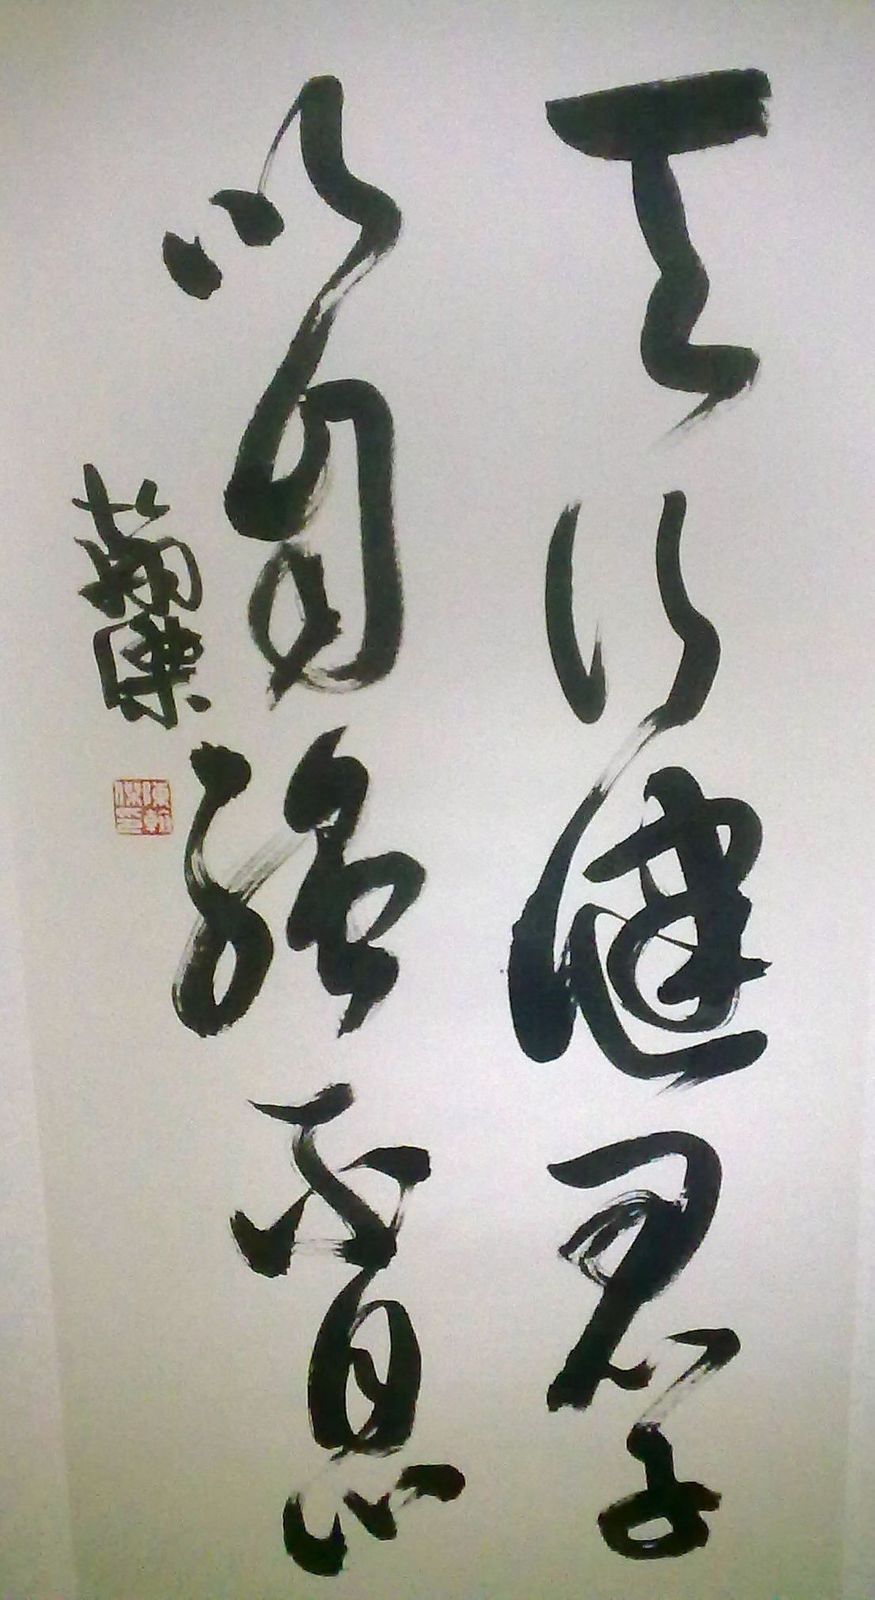 天行健君子
以自強不息